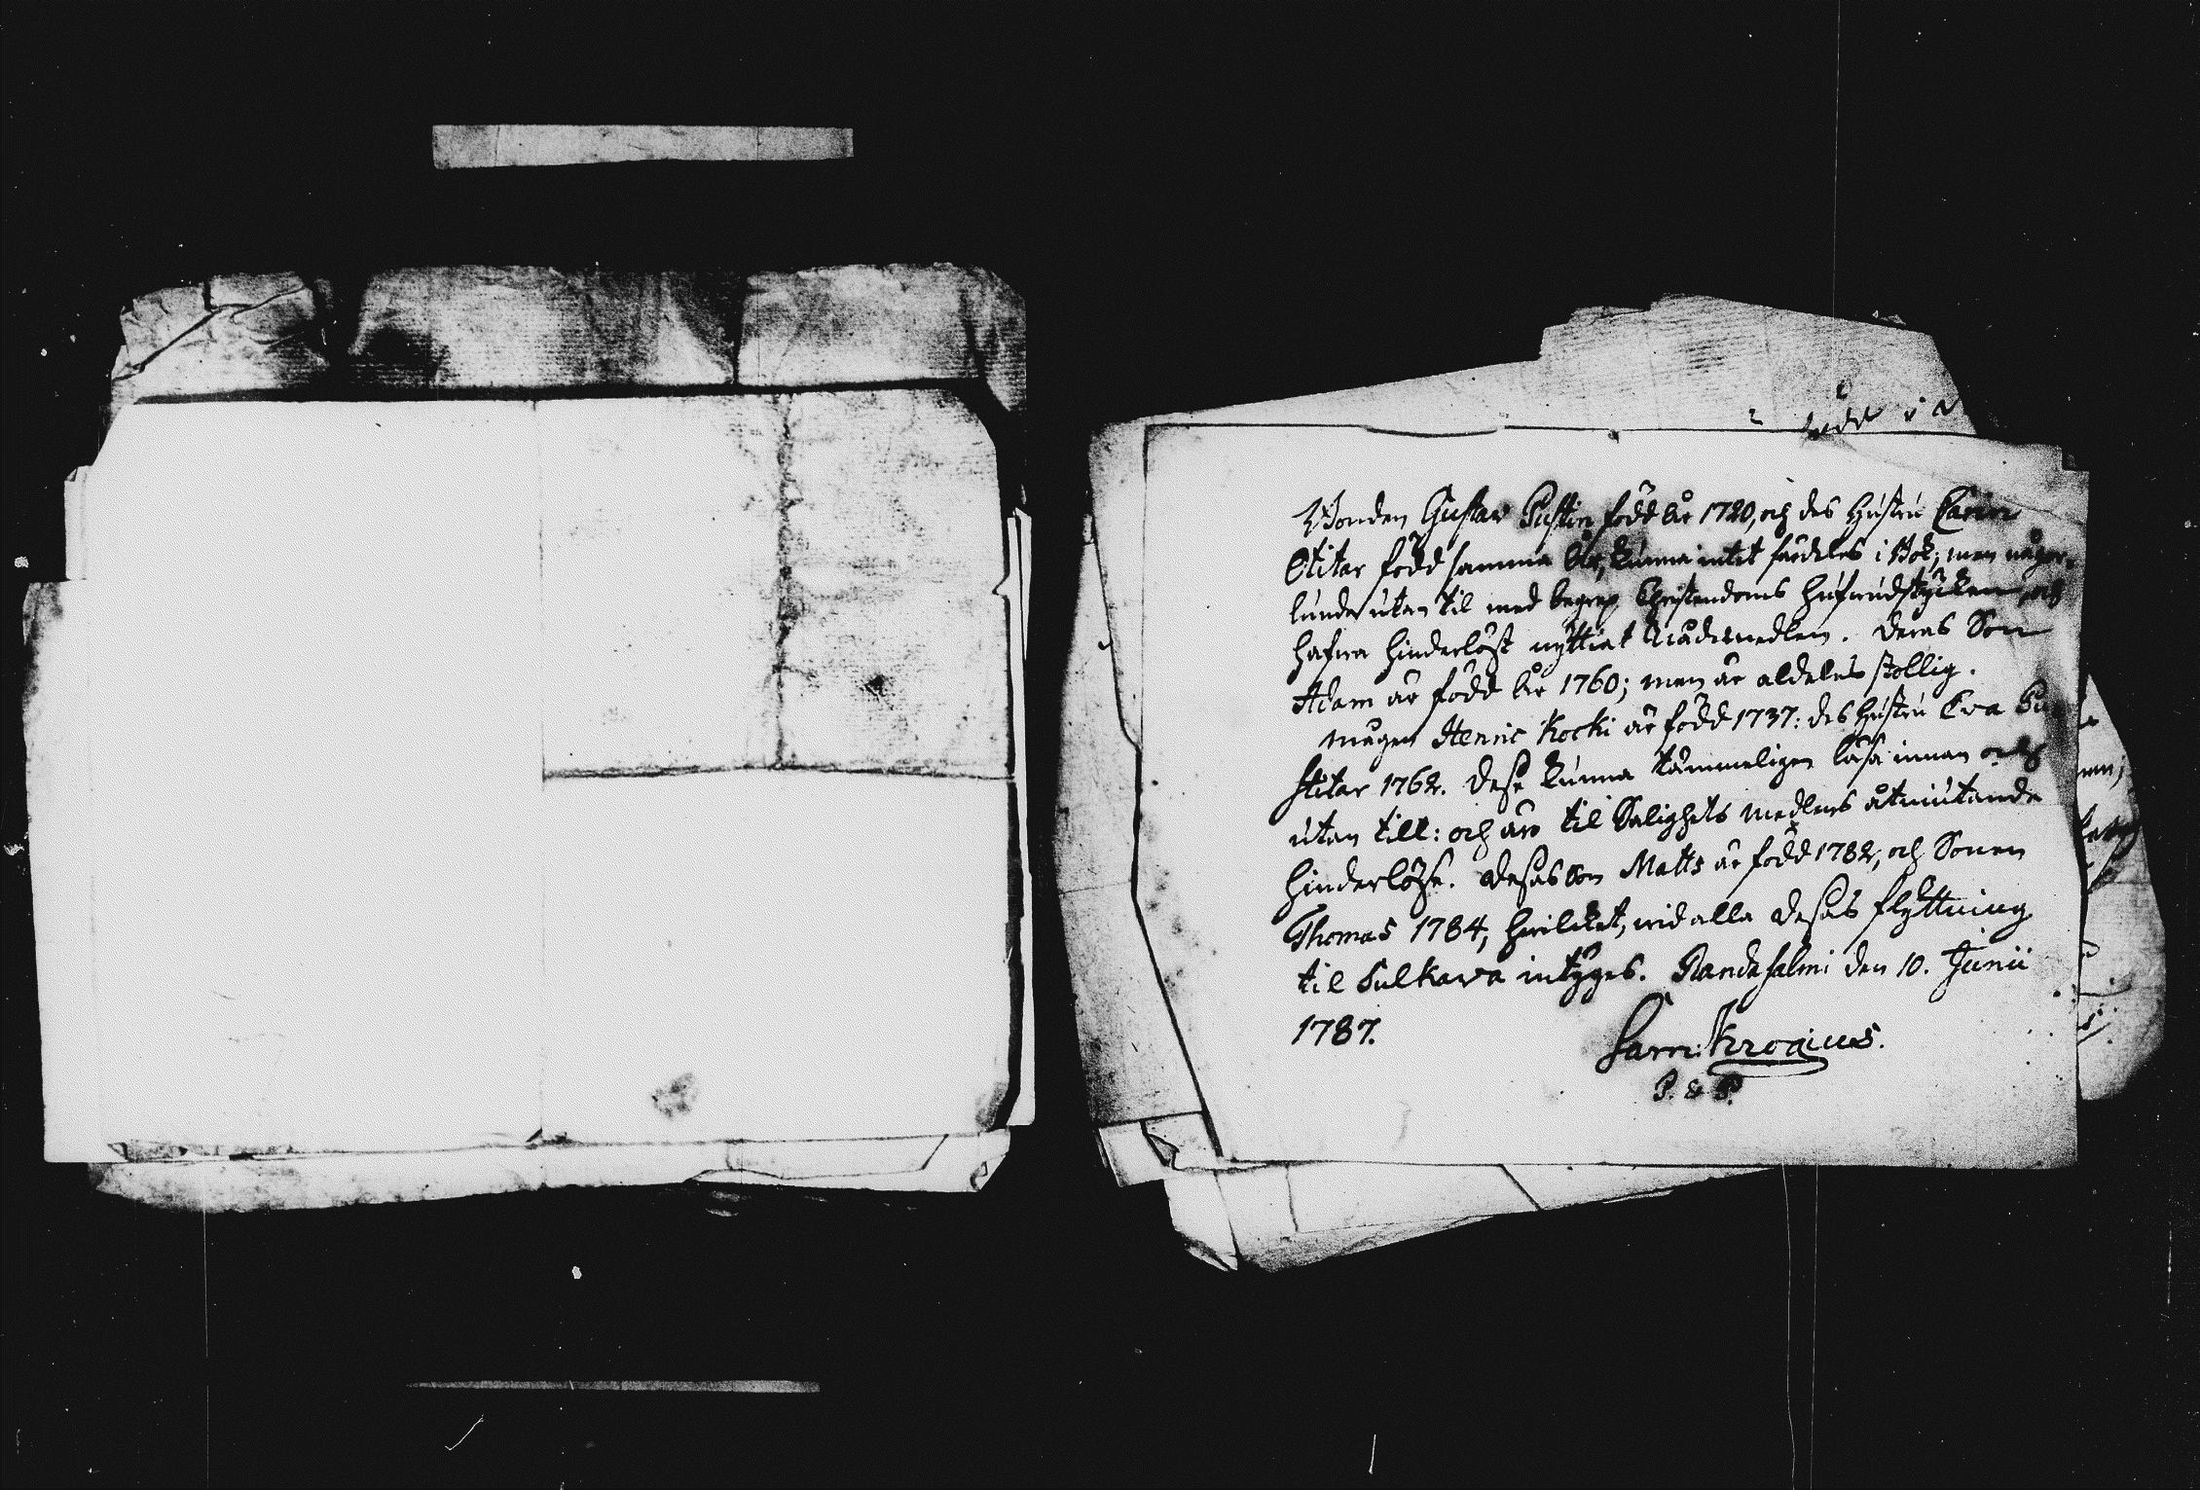 född i
Bonden Gustav Pustin född år 1720, och des Hustru Carin
Otitar född samma År, kunna intet särdeles i Bok; men någor-
lunda utan til med begrep Christendoms hufwudstycken, och
hafwa hinderlöst nyttiat Nådemedlen. Deras Son
Adam är född år 1760; men är aldeles stollig.
mågen Henric Kocki är född 1737: des Hustru Eva Pu
stitar 1762. Desse kunna tämmeligen läsa innan och
utan till: och äro til Salighets medlens åtniutande
hinderlösse. Dessas Son Matts är född 1782, och Sonen
Thomas 1784, hwilcket, wid alla dessas flyttning
til Sulkava intyges. Randasalmi den 10. Junii
1787.
Sam: Krogius.
P. & P.